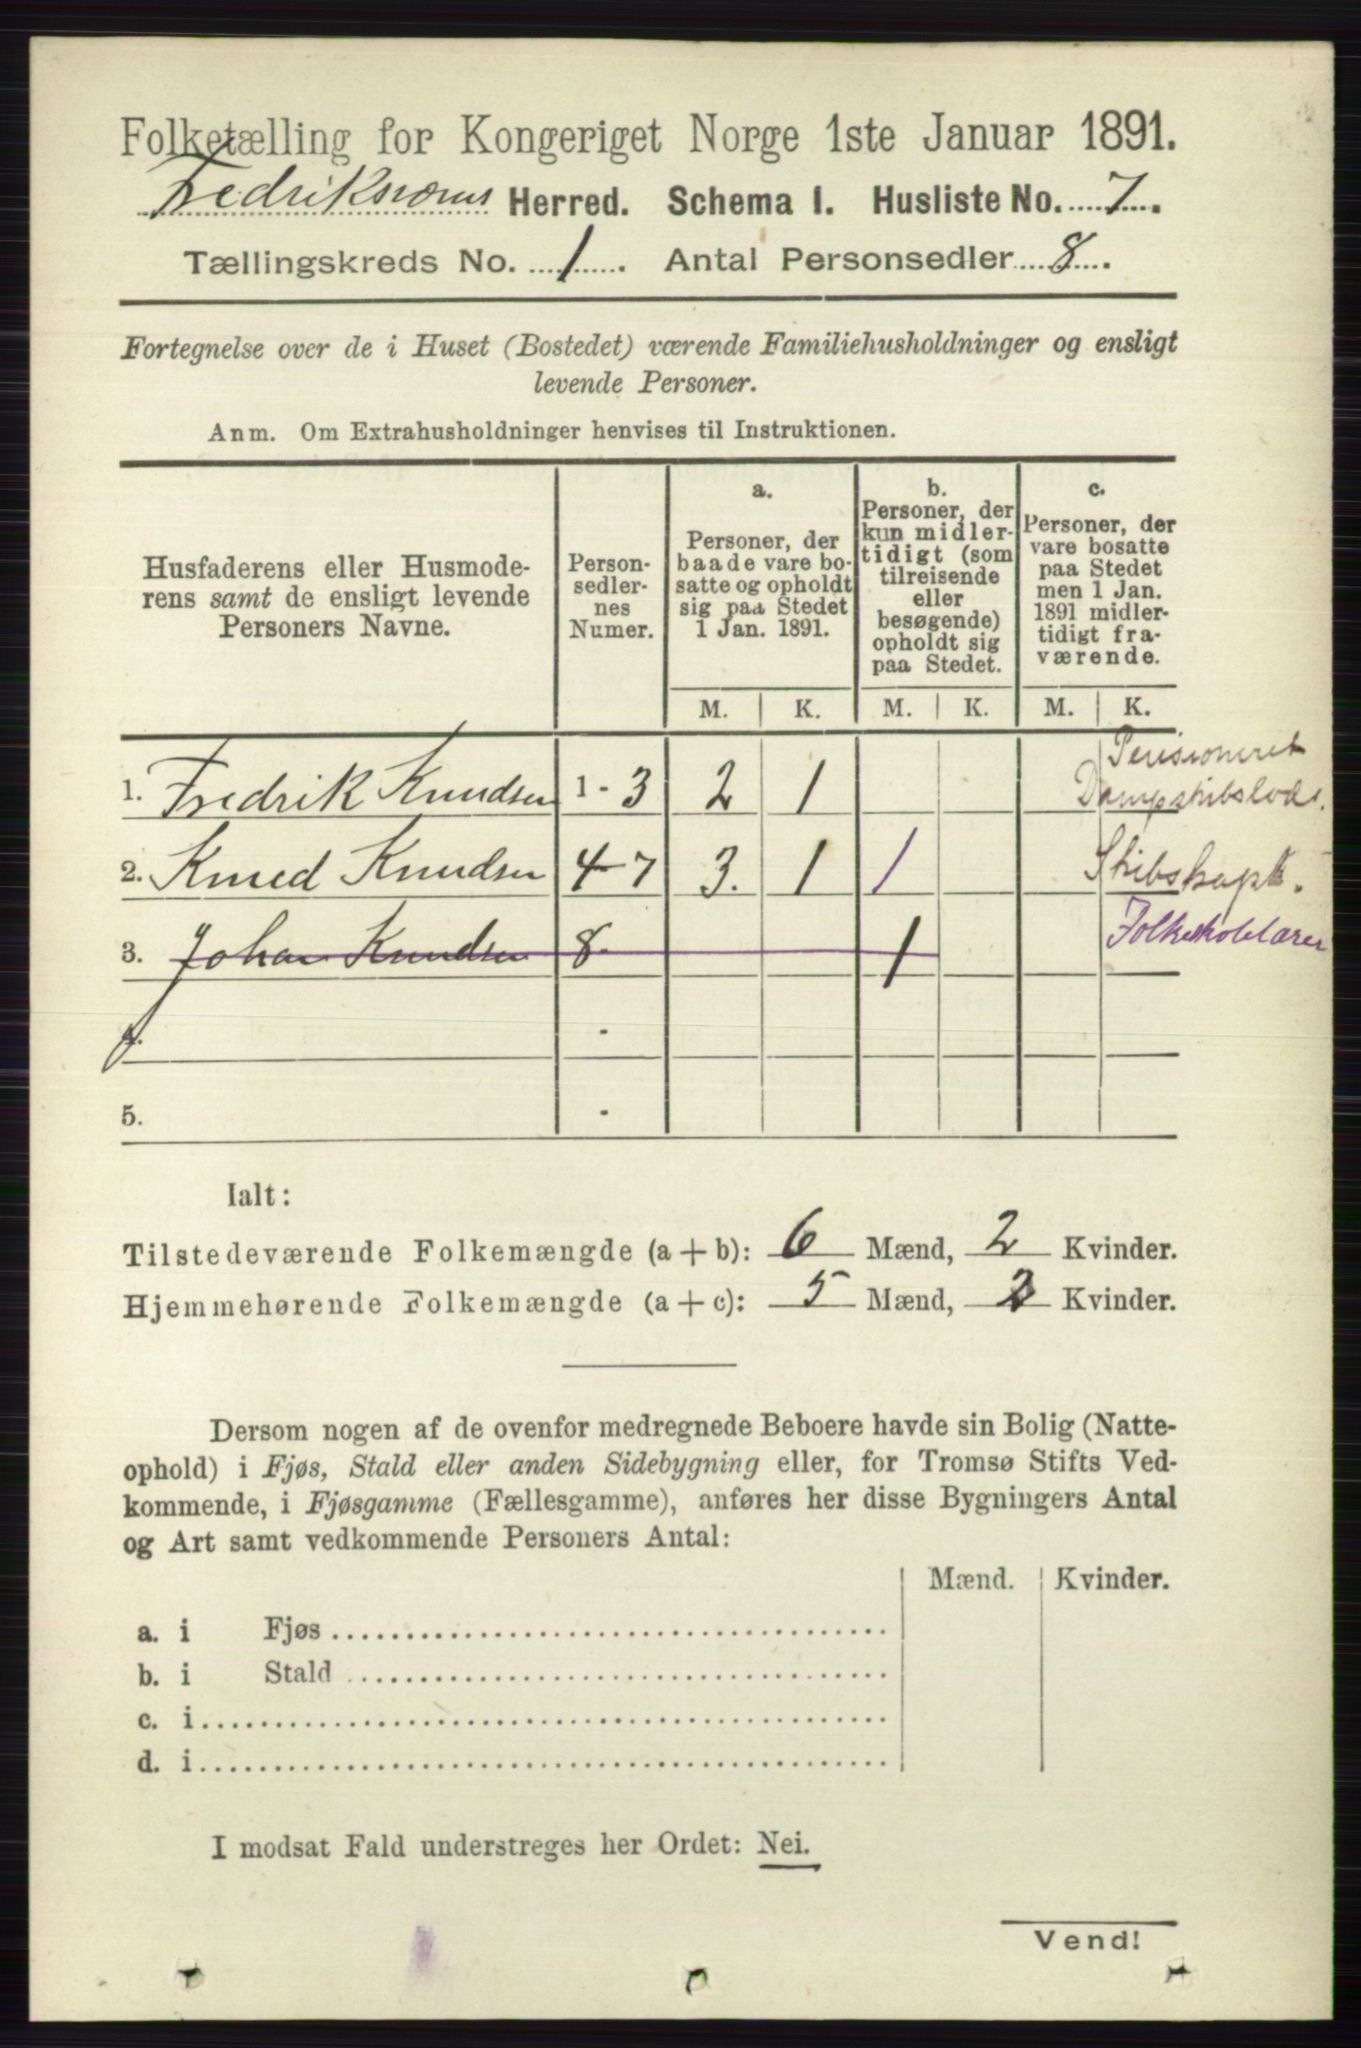 Folketælling for Kongeriget Norge 1ste Januar 1891.
Fredriksværns Herred. Schema 1. Husliste No. 7.
Tællingskreds No. 1. Antal Personsedler 8.
Fortegnelse over de i Huset (Bostedet) værende Familiehusholdninger og ensligt
levende Personer.
Anm. Om Extrahusholdninger henvises til Instruktionen.
Husfaderens eller Husmode-
rens samt de ensligt levende
Personers Navne.
Person-
sedler-
nes
Numer.
a.
Personer, der
baade vare bo-
satte og opholdt
sig paa Stedet
1 Jan. 1891.
b.
Personer, der
kun midler-
tidigt (som
tilreisende
eller
besøgende)
opholdt sig
paa Stedet.
c.
Personer, der
vare bosatte
paa Stedet
men 1 Jan.
1891 midler-
tidigt fra-
værende.
M. K. M. K. M. K.
1. Fredrik Knudsen 1-3 2 1 Pensioneret
Dampskibslods.
2. Knud Knudsen 4-7 3. 1 1 Skibskapt.
3. Johan Knudsen 8- 1 Folkeskolelærer
4. -
5. -
Ialt:
Tilstedeværende Folkemængde (a+b): 6 Mænd, 2 Kvinder.
Hjemmehørende Folkemængde (a+c): 5 Mænd, 2 Kvinder.
Dersom nogen af de ovenfor medregnede Beboere havde sin Bolig (Natte-
ophold) i Fjøs, Stald eller anden Sidebygning eller, for Tromsø Stifts Ved-
kommende, i Fjøsgamme (Fællesgamme), anføres her disse Bygningers Antal
og Art samt vedkommende Personers Antal:
Mænd. Kvinder.
a. i Fjøs
b. i Stald
c. i
d. i
I modsat Fald understreges her Ordet: Nei.
Vend!